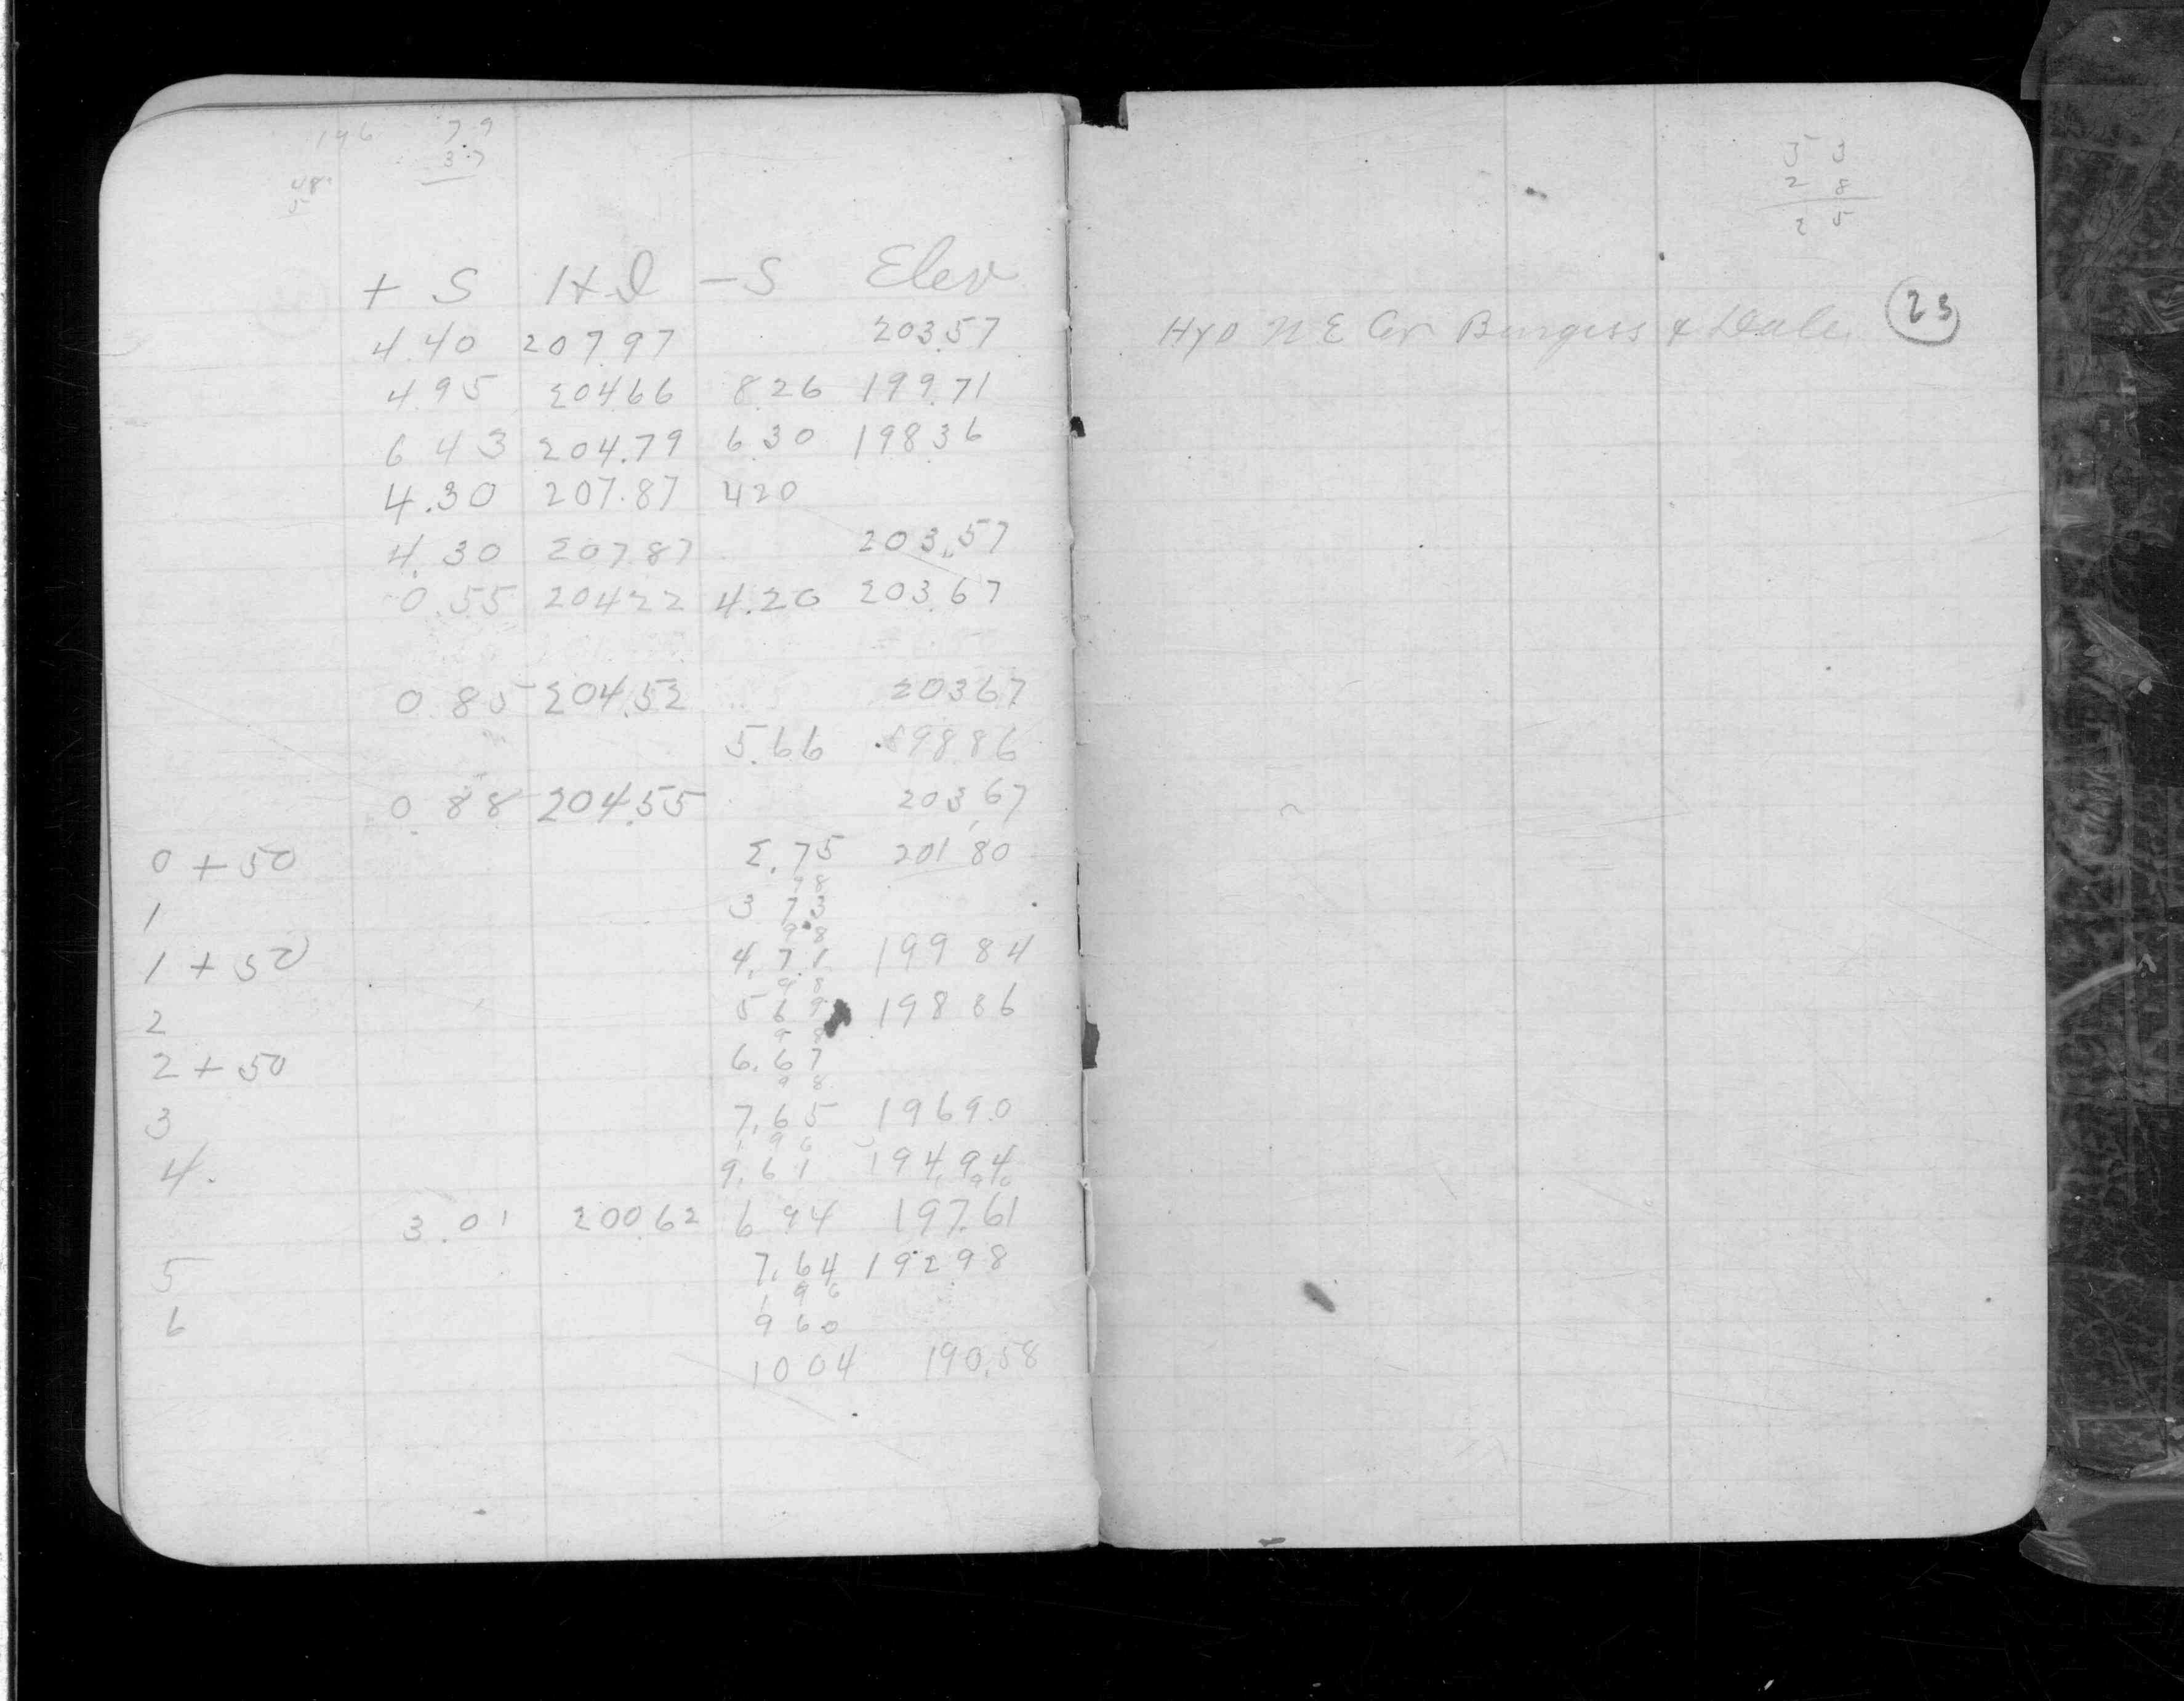 196 7.9
3.7
48
+ S H I - S Elev
4.40 207.97 203.57
4.95 204.66 8.26 199.71
6.43 204.79 6.30 198.36
4.30 207.87 420
4.30 207.87 203.57
0.55 20422 4.20 203.67
0.85 204.52 203.67
5.66 198.86
0.88 204.55 203.67
0 + 50 2.75 201.80
98
1 3 73
98
1 + 50 4.71 199 84
98
2 5 69 198 86
98
2 + 50 6.67
98
3 7.65 196 9.0
1 96
4. 9.61 194.94
3.01 200.62 6 94 197.61
5 7.64 192 98
1 96
6 9 60
10 04 190.58
3 3
2 8
2 5
23
Hyd N E Cor Burgess & Dale